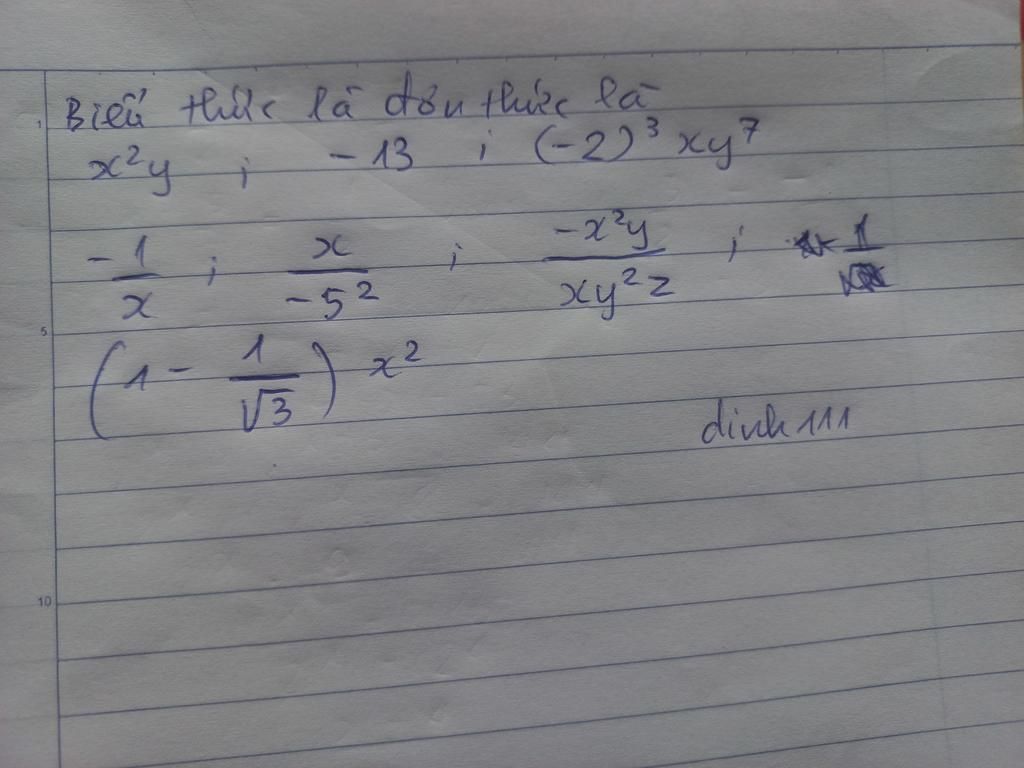 Biểu thức là đơn thức là
x²y ; -13 ; (-2)³ xy⁷
-1/x ; x/-5² ; -x²y/xy²z ; 1
(1 - 1/√3) x²
dinh111
1
5
10